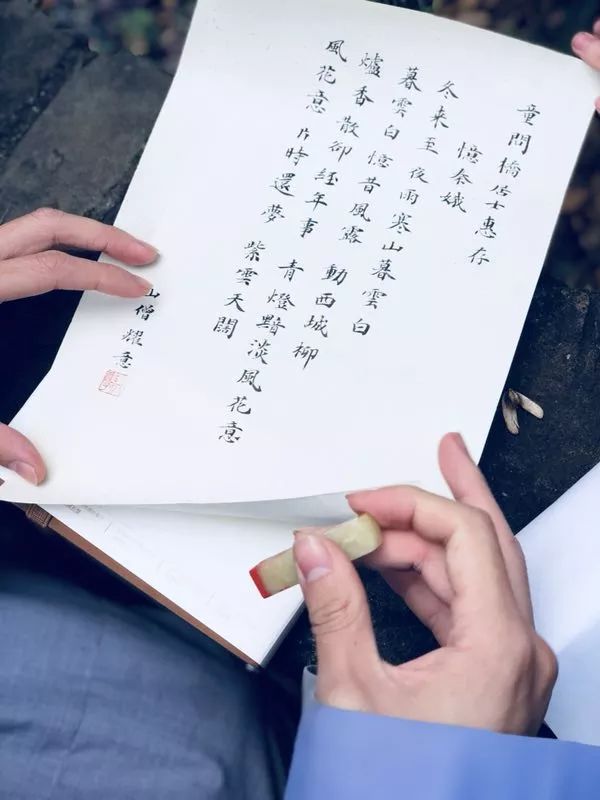 童問橋居士惠存
憶秦娥
冬来至夜雨寒山暮雲白
暮雲白憶昔風露動西城柳
爐香散卻経年事青燈黯淡風花意
風花意片時還夢紫雲天闊
山僧耀意